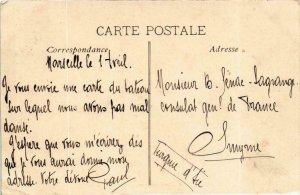 CARTE POSTALE
Correspondance
Adresse
Marseille le 1 Avril.
Je vous envoie une carte du bateau
sur lequel nous avons pas mal
danse.
J'espere que vous m'écrirez dès
que je vous aurai donné mon
adresse. Votre dévoué
Paul
Monsieur B. Pénac-Lagrange
consulat gen. de France
Smyrne
Turquie d'Asie